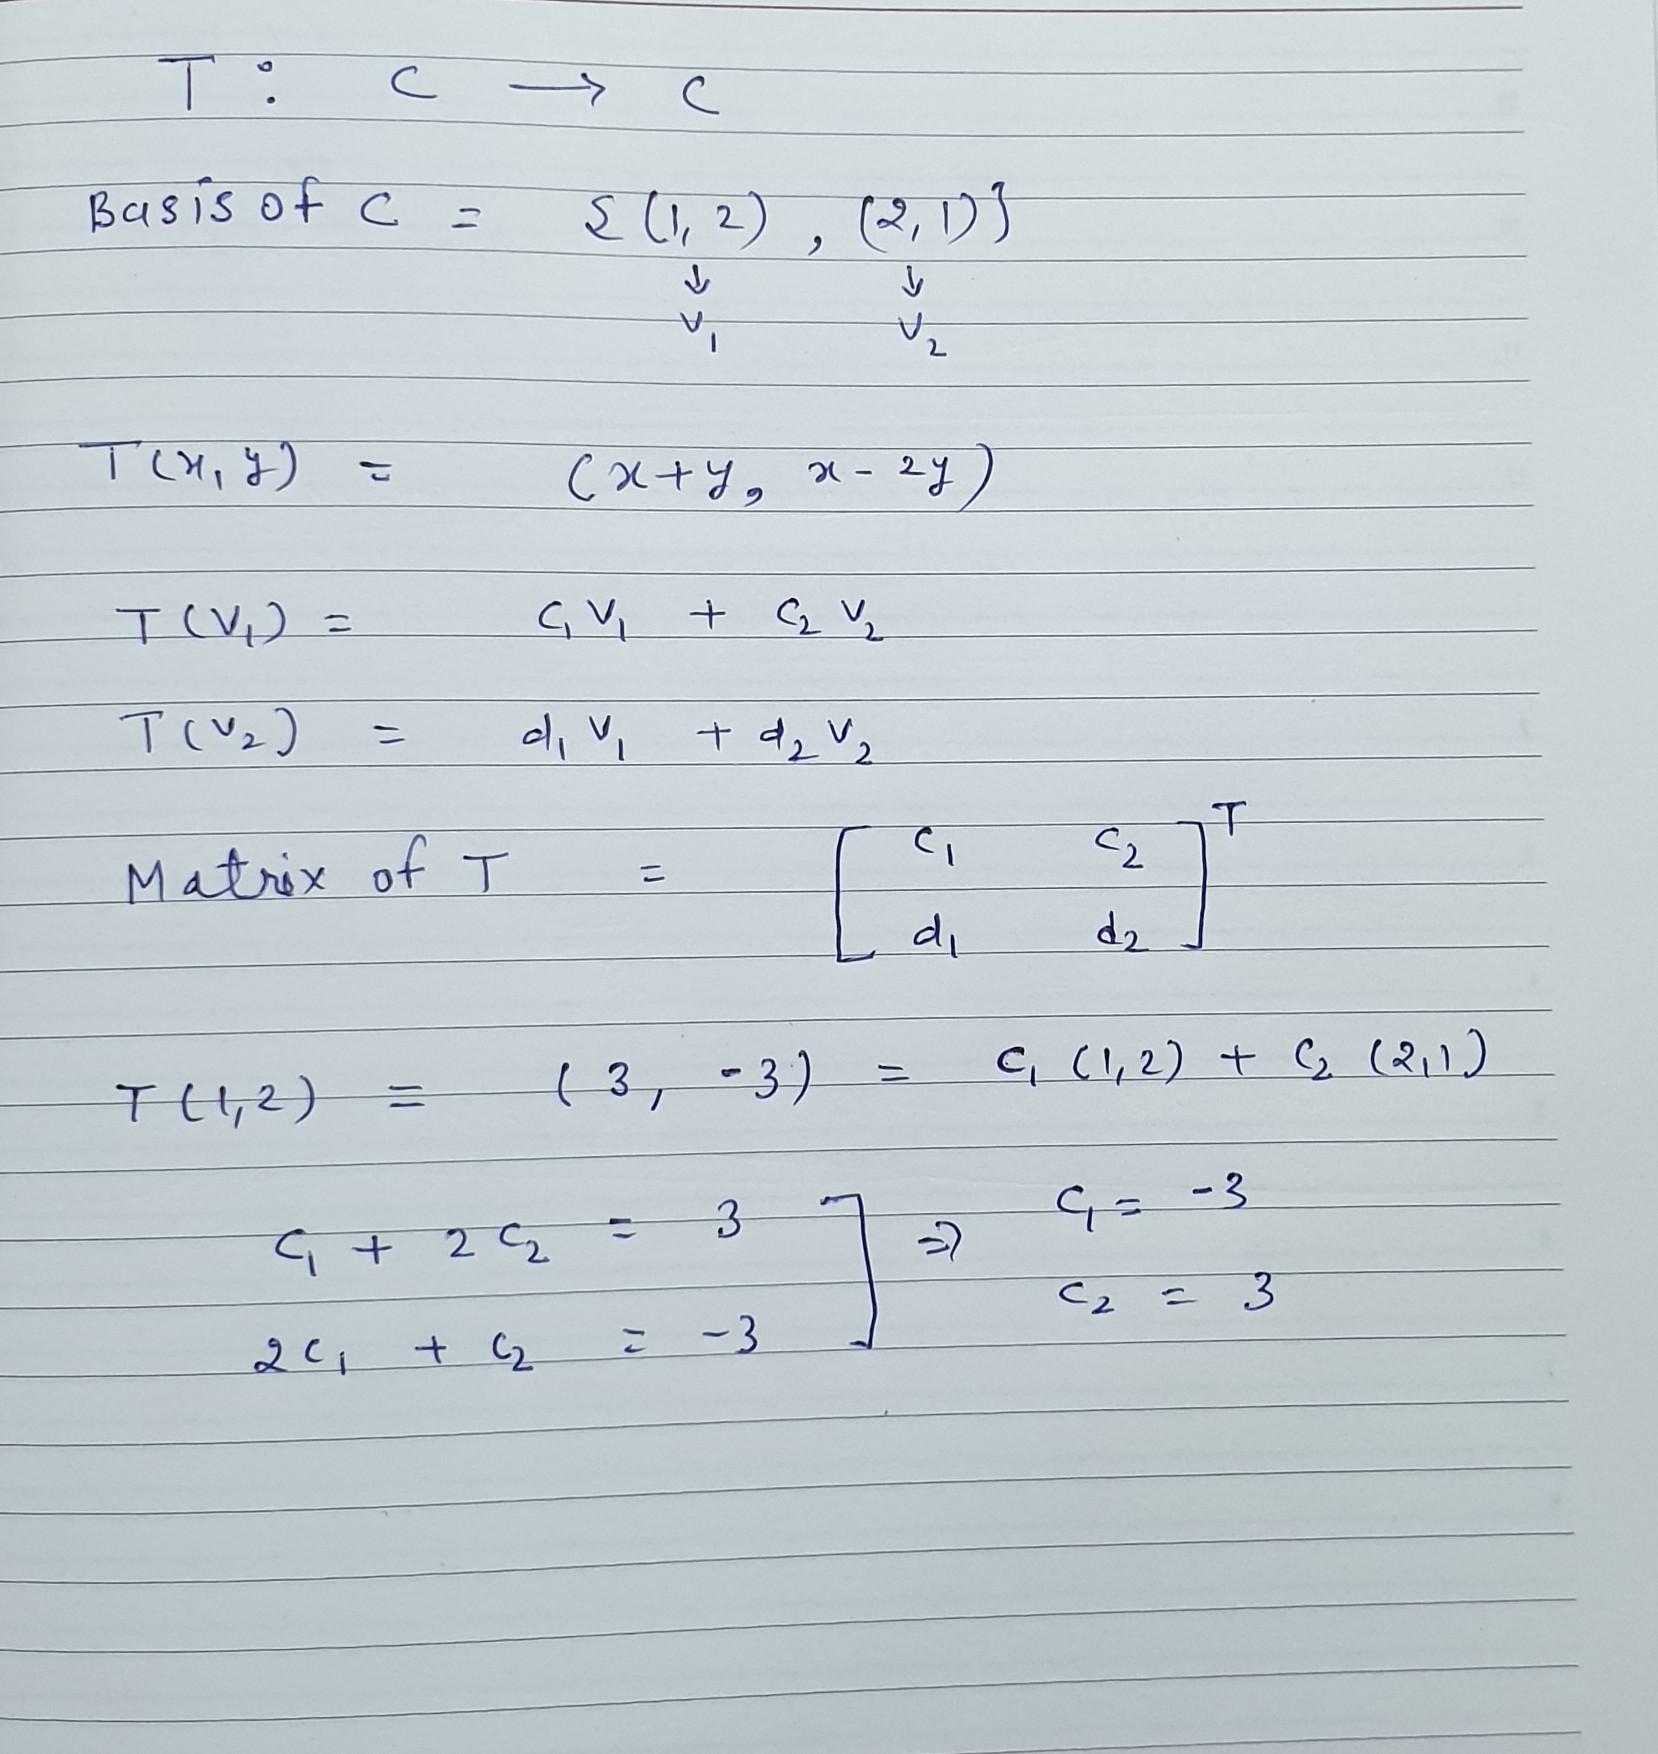 T : C → C
Basis of C = {(1, 2) , (2, 1)}
↓ ↓
V₁ V₂
T(x, y) = (x+y, x-2y)
T(V₁) = C₁V₁ + C₂V₂
T(V₂) = d₁V₁ + d₂V₂
Matrix of T = [C₁ C₂
d₁ d₂]ᵀ
T(1,2) = (3, -3) = C₁(1,2) + C₂(2,1)
C₁ + 2C₂ = 3 ] ⇒ C₁ = -3
C₂ = 3
2C₁ + C₂ = -3